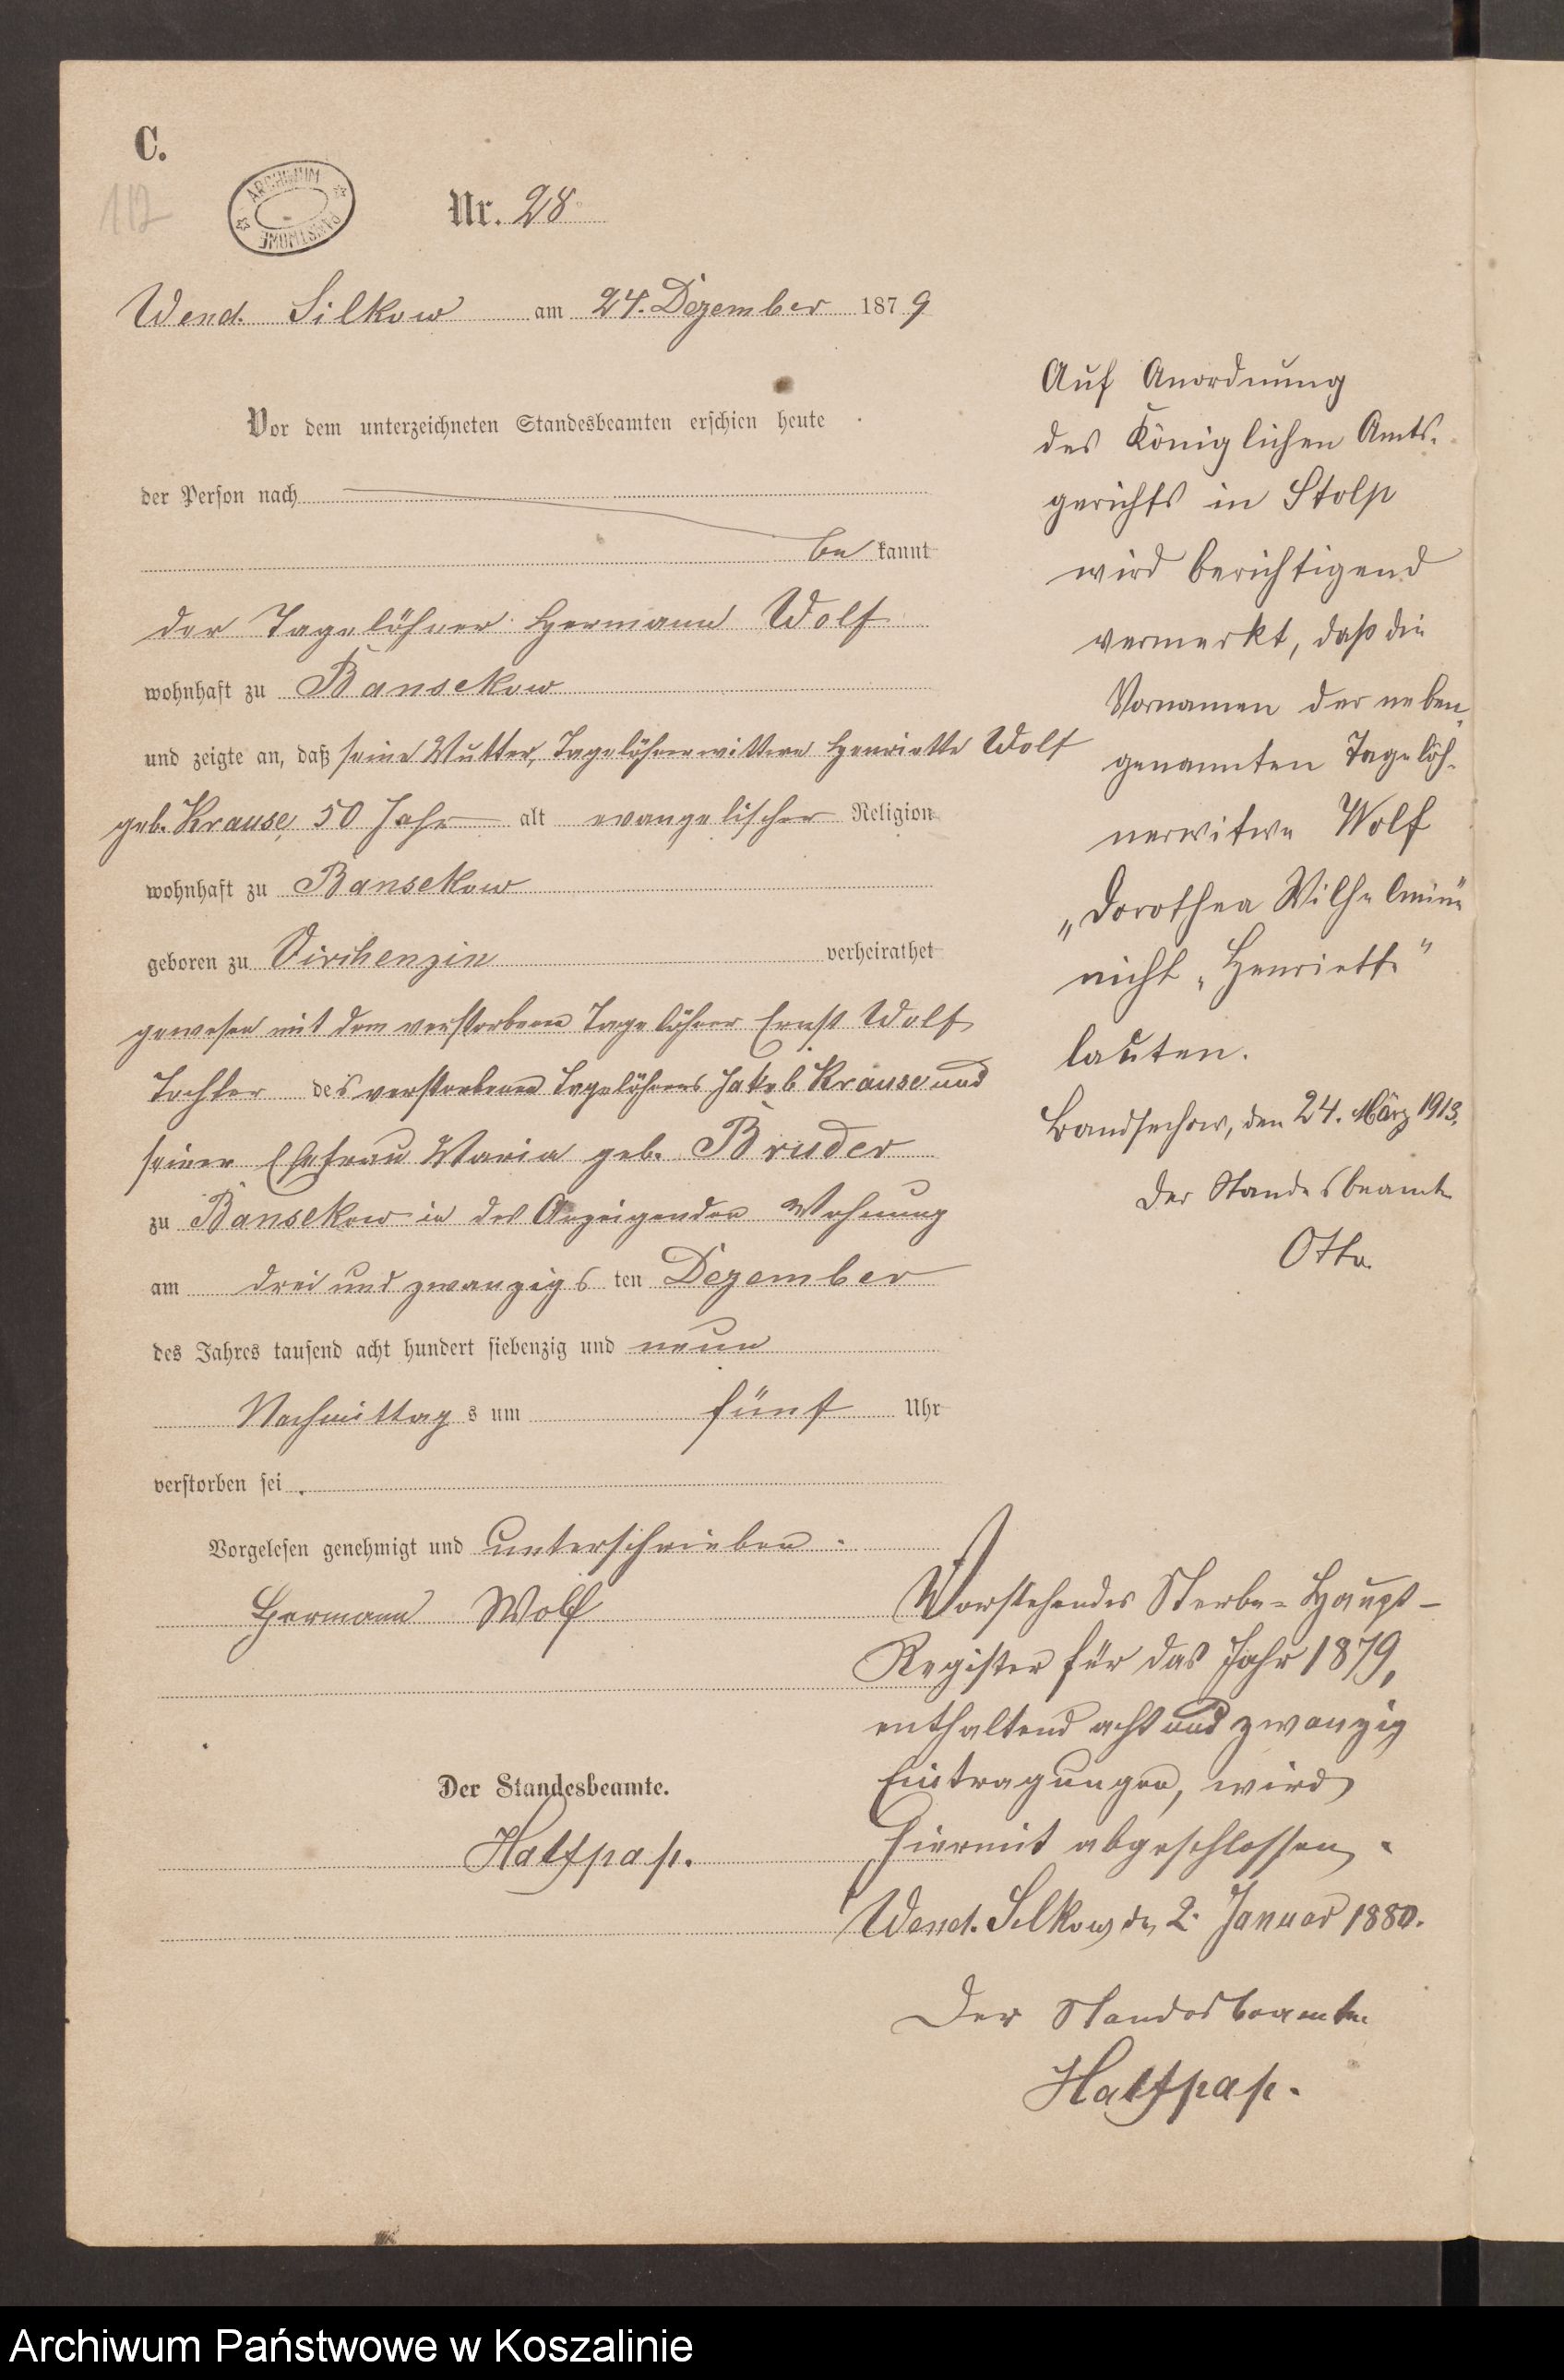 C.
112
ARCHIWUM PAŃSTWOWE
Nr. 28
Wend. Silkow am 24. Dezember 1879
Vor dem unterzeichneten Standesbeamten erschien heute
der Person nach
be kannt
der Tagelöhner Hermann Wolf
wohnhaft zu Bansekow
und zeigte an, daß seine Mutter, Tagelöhnerwittwe Henriette Wolf
geb. Krause, 50 Jahr alt evangelischer Religion
wohnhaft zu Bansekow
geboren zu Virchenzin verheirathet
gewesen mit dem verstorbenen Tagelöhner Ernst Wolf
Tochter des verstorbenen Tagelöhners Jakob Krause und
seiner Ehefrau Maria geb. Bruder
zu Bansekow in des Anzeigenden Wohnung
am drei und zwanzigs ten Dezember
des Jahres tausend acht hundert siebenzig und neun
Nachmittag s um fünf Uhr
verstorben sei.
Vorgelesen genehmigt und unterschrieben.
Hermann Wolf
Der Standesbeamte.
Halfpap.
Auf Anordnung
des Königlichen Amts-
gerichts in Stolp
wird berichtigend
vermerkt, daß die
Vornamen der neben-
genannten Tagelöh-
nerwitwe Wolf
„Dorothea Wilhelmine"
nicht „Henriette"
lauten.
Bandsechow, den 24. März 1913.
Der Standesbeamte
Otto
Vorstehendes Sterbe-Haupt-
Register für das Jahr 1879,
enthaltend acht und zwanzig
Eintragungen, wird
hiermit abgeschlossen.
Wend. Silkow, den 2. Januar 1880.
Der Standesbeamte
Halfpap.
Archiwum Państwowe w Koszalinie